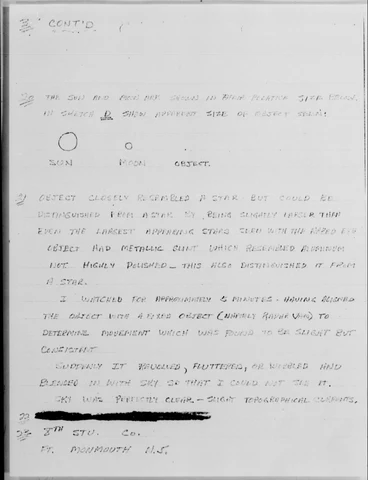 CONT'D
20 THE SUN AND MOON ARE SHOWN IN THEIR RELATIVE SIZE BELOW.
IN SKETCH D SHOW APPARENT SIZE OF OBJECT SEEN:
SUN MOON OBJECT.
21 OBJECT CLOSELY RESEMBLED A STAR BUT COULD BE
DISTINGUISHED FROM A STAR BY BEING SLIGHTLY LARGER THAN
EVEN THE LARGEST APPEARING STARS SEEN WITH THE NAKED EYE
OBJECT HAD METALLIC GLINT WHICH RESEMBLED ALUMINUM
NOT HIGHLY POLISHED - THIS ALSO DISTINGUISHED IT FROM
A STAR.
I WATCHED FOR APPROXIMATELY 5 MINUTES - HAVING ALIGNED
THE OBJECT WITH A FIXED OBJECT (NAMELY RADAR VAN) TO
DETERMINE MOVEMENT WHICH WAS FOUND TO BE SLIGHT BUT
CONSISTENT
SUDDENLY IT FLUTTERED, OR WOBBLED AND
BLENDED IN WITH SKY SO THAT I COULD NOT SEE IT.
SKY WAS PERFECTLY CLEAR - SLIGHT
22
23 8TH STU. CO.
FT. MONMOUTH N.J.